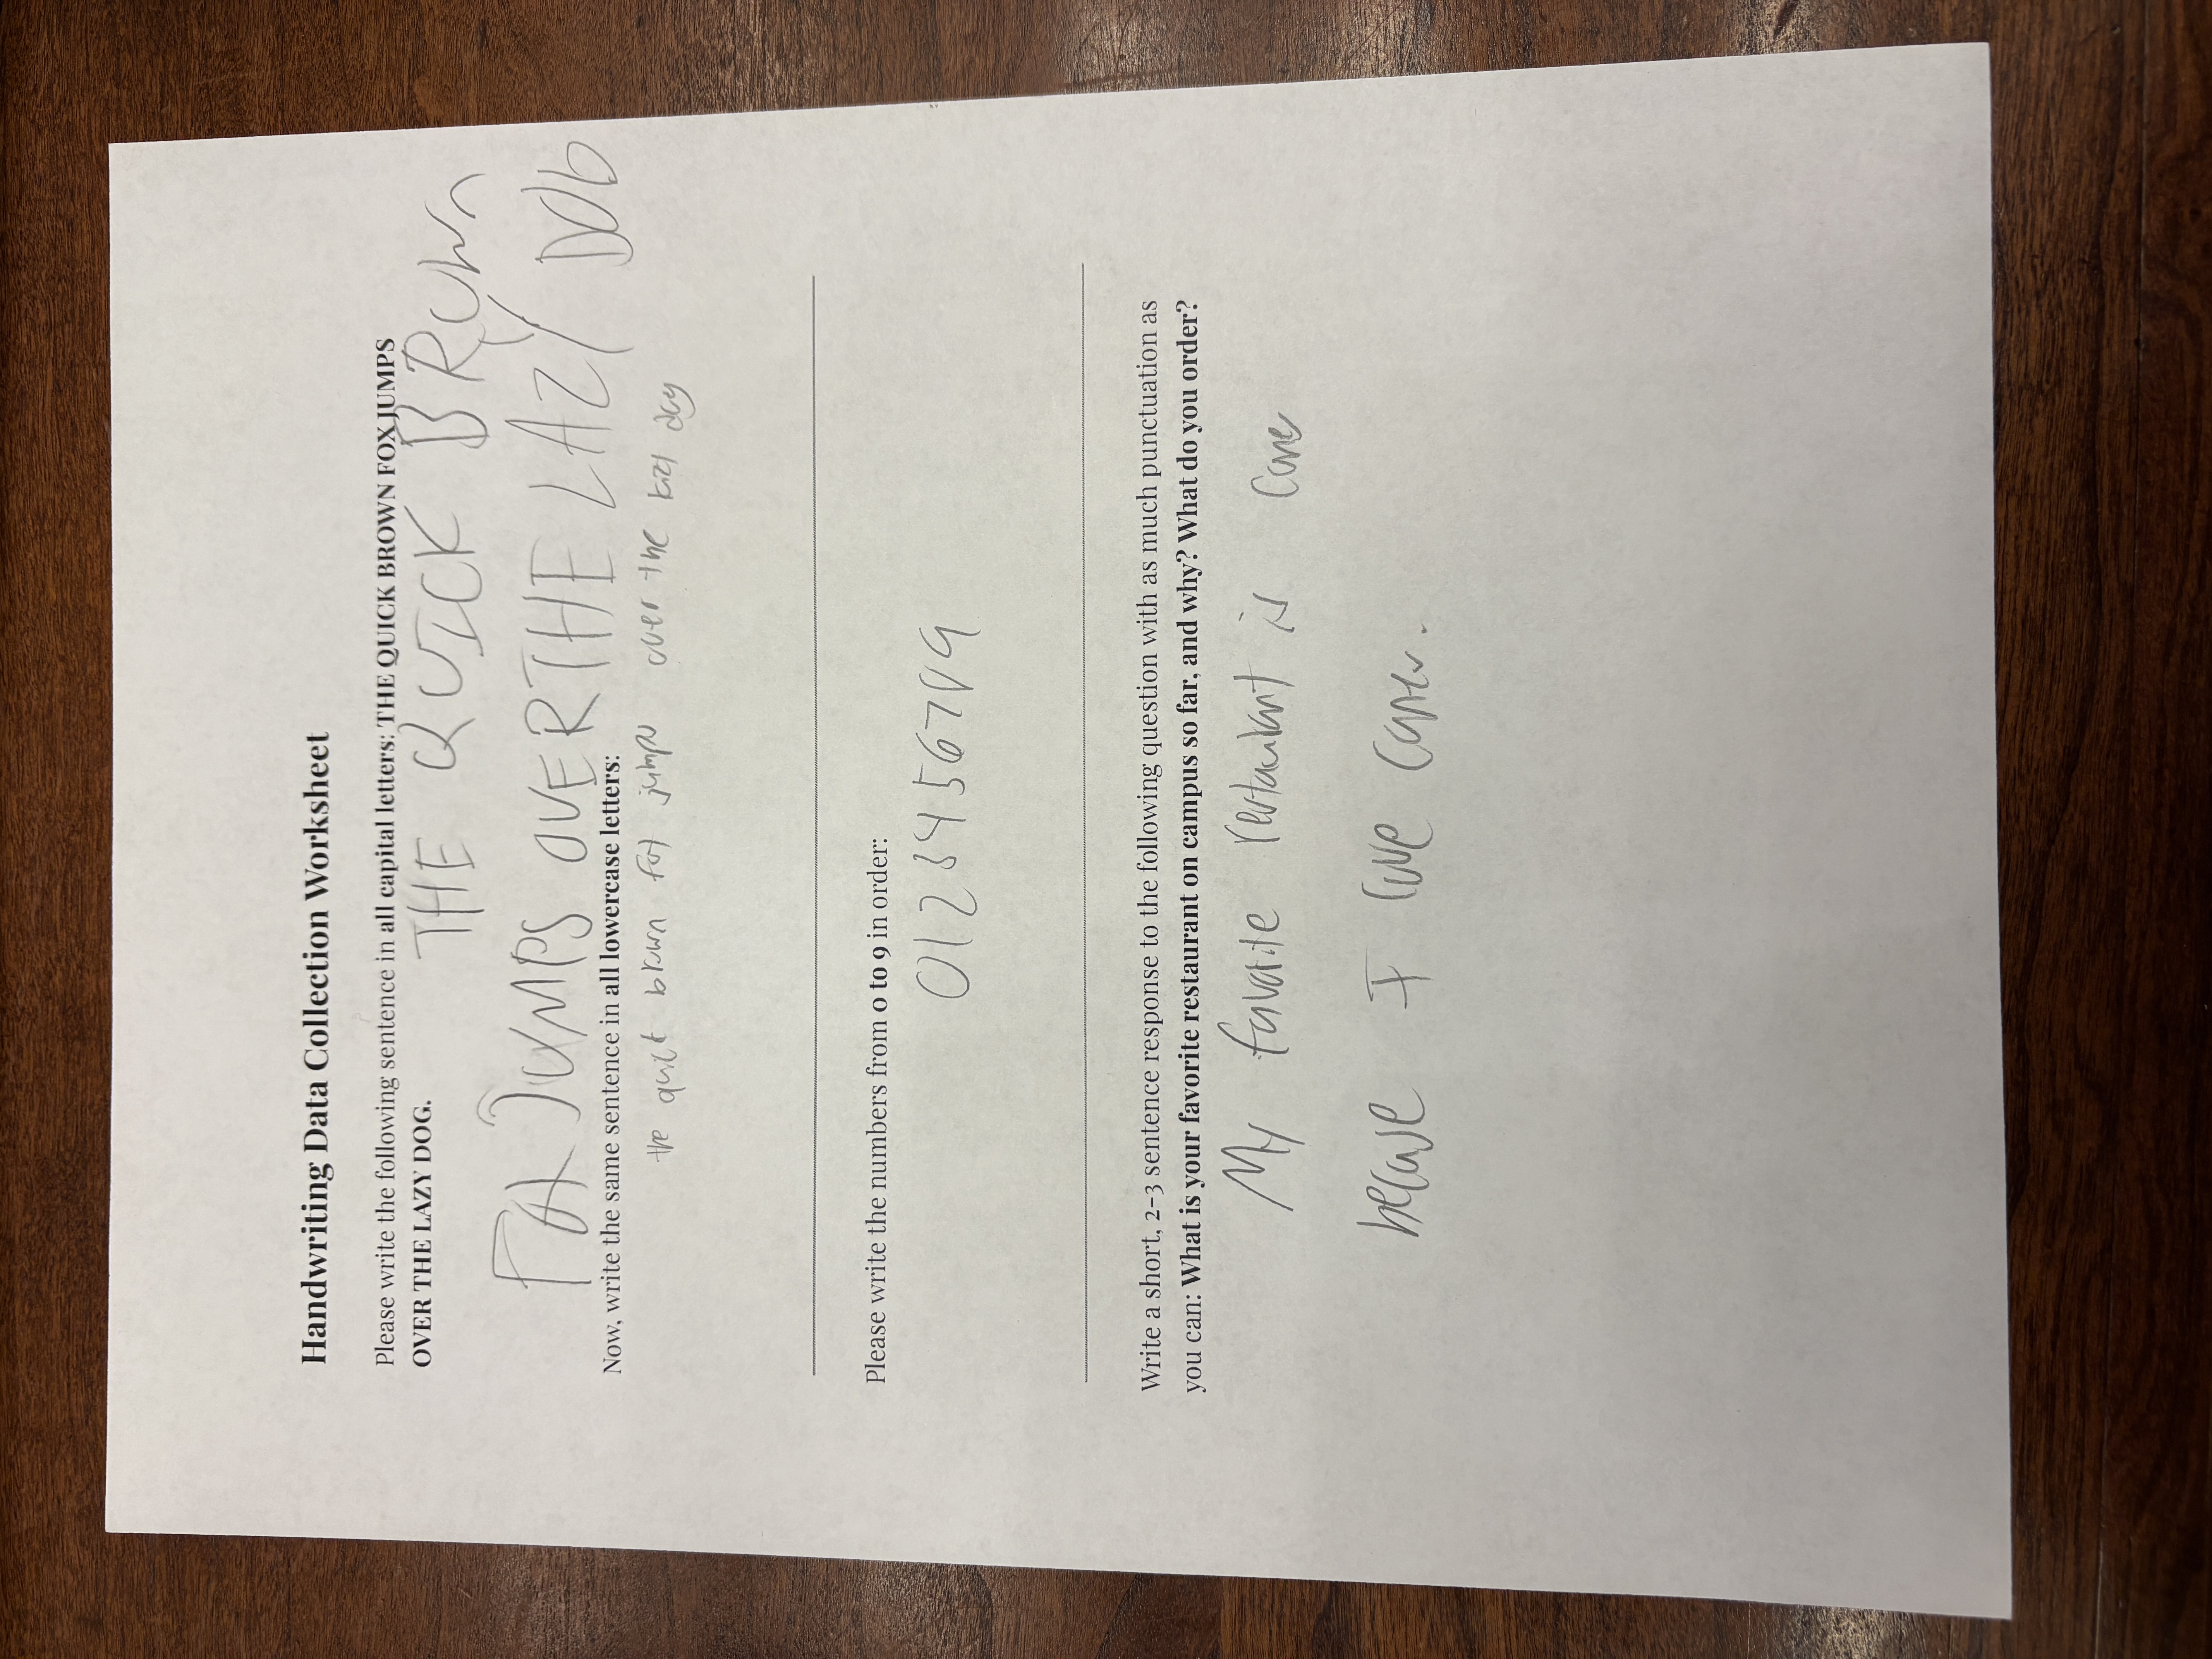 Handwriting Data Collection Worksheet
Please write the following sentence in all capital letters: THE QUICK BROWN FOX JUMPS
OVER THE LAZY DOG.
THE QUICK BROWn
FOX JUMPS OVER THE LAZY DOG
Now, write the same sentence in all lowercase letters:
the quick brown fox jumps over the lazy dog
Please write the numbers from 0 to 9 in order:
0123456789
Write a short, 2-3 sentence response to the following question with as much punctuation as
you can: What is your favorite restaurant on campus so far, and why? What do you order?
My favorite restaurant is Canes
because I love Canes.